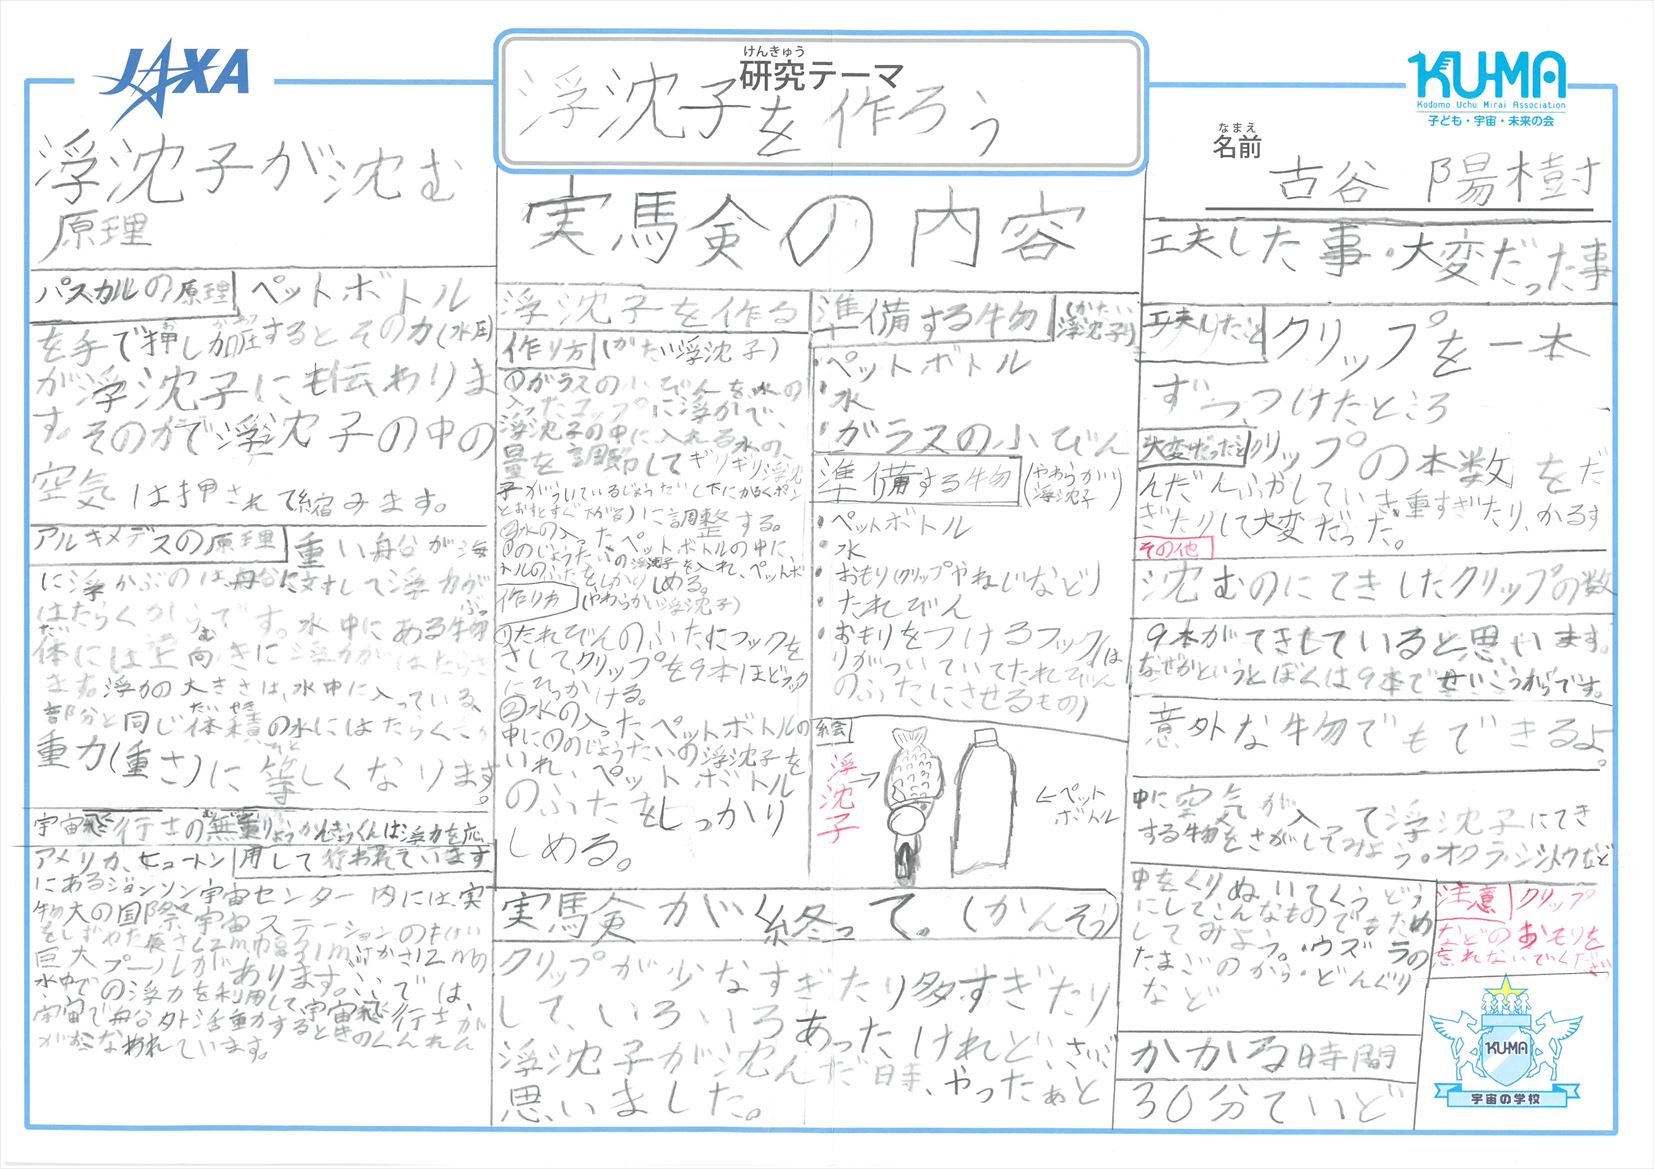 JAXA
けんきゅう
研究テーマ
浮沈子を作ろう
KU-MA
Kodomo Uchu Mirai Association
子ども・宇宙・未来の会
なまえ
名前
古谷 陽樹
浮沈子が沈む
原理
パスカルの原理 ペットボトル
を手で押し加圧するとその力(水圧)
が浮沈子にも伝わりま
す。その力で浮沈子の中の
空気は押されて縮みます。
アルキメデスの原理 重い船が海
に浮かぶのは船に対して浮力が
はたらくからです。水中にある物
体には上向きに浮力がはたらき
ます。浮力の大きさは、水中に入っている
部分と同じ体積の水にはたらく
重力(重さ)に等しくなります。
宇宙飛行士の無重りょくかんきょうくんは浮力を応
用して行われています
アメリカ、ヒュートン
にあるジョンソン宇宙センター内には、実
物大の国際宇宙ステーションのもけい
をしずめた
巨大プールがあります。ここでは、
水中での浮力を利用して、宇宙飛行士が
宇宙で船外活動するときのくんれん
がおこなわれています。
実験の内容
浮沈子を作る
作り方 (かたい浮沈子)
①ガラスの小びんを水の
入ったコップに浮かべ、
浮沈子の中に入れる水の、
量を調節してギリギリ浮沈
子がういているじょうたい(上にかるくポン
とおすとすぐ下がる)に調整する。
②水の入ったペットボトルの中に
①のじょうたいの浮沈子を入れ、ペットボ
トルのふたをしっかりしめる。
作り方 (やわらかい浮沈子)
①たれびんのふたにフックを
さして、クリップを9本ほどフック
にひっかける。
②水の入ったペットボトルの
中に①のじょうたいの浮沈子を
いれ、ペットボトル
のふたをしっかり
しめる。
準備する物 (かたい浮沈子)
・ペットボトル
・水
・ガラスの小びん
準備する物 (やわらかい浮沈子)
・ペットボトル
・水
・おもり(クリップやねじなど)
・たれびん
・おもりをつけるフック(は
りがついていてたれびん
のふたにさせるもの)
絵
浮沈子→
←ペットボトル
実験が終って。(かんそう)
クリップが少なすぎたり多すぎたり
して、いろいろあったけれど、さいご
浮沈子が沈んだ時、やったぁと
思いました。
工夫した事・大変だった事
工夫したこと クリップを一本
ずつつけたところ
大変だったこと クリップの本数をだ
んだんふやしていき、重すぎたり、かるす
ぎたりして大変だった。
その他
沈むのにてきしたクリップの数
9本がてきしていると思います。
なぜかというとぼくは9本でせいこうからです。
意外な物でもできるよ
中に空気が入って浮沈子にてき
する物をさがしてみよう。オクラ・シシトウなど
中をくりぬいてくうどう
にしてこんなものでもため
してみよう。・ウズラの
たまごのから・どんぐり
など
注意 クリップ
などのおもりを
忘れないでください
かかる時間
30分ていど
KUMA
宇宙の学校